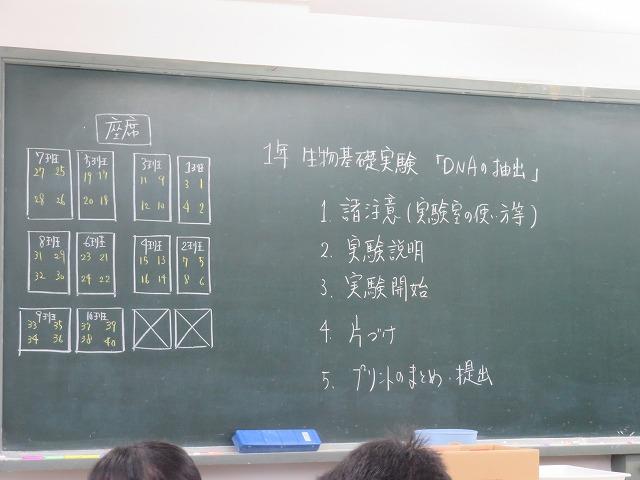 座席
7班 5班 3班 1班
27 25 19 17 11 9 3 1
28 26 20 18 12 10 4 2
8班 6班 4班 2班
31 29 23 21 15 13 7 5
32 30 24 22 16 14 8 6
9班 10班
33 35 37 39
34 36 38 40
1年 生物基礎実験 「DNAの抽出」
1. 諸注意(実験室の使い方等)
2. 実験説明
3. 実験開始
4. 片づけ
5. プリントのまとめ・提出